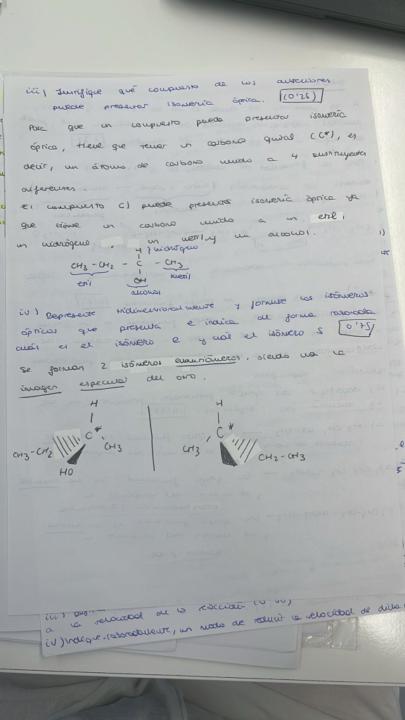 iii) Justifique qué compuesto de los anteriores
puede presentar isomería óptica. (0'25)
Para que un compuesto pueda presentar isomería
óptica, tiene que tener un carbono quiral (C*), es
decir, un átomo de carbono unido a 4 sustituyentes
diferentes.
El compuesto C) puede presentar isomería óptica ya
que tiene un carbono unido a un etil,
un hidrógeno un metil y un alcohol.
H } hidrógeno
CH3 - CH2 - C - CH3
etil OH metil
alcohol
iv) Represente tridimensionalmente y formule los isómeros
ópticos que presenta e indica de forma razonada
cuál es el isómero R y cuál el isómero S 0'75
Se forman 2 isómeros enantiómeros, siendo uno la
imagen especular del otro.
H H
C* C*
CH3-CH2 CH3 CH3 CH2-CH3
HO
iii)
a la velocidad de la reacción
iv) Indique razonadamente, un modo de reducir la velocidad de dicha